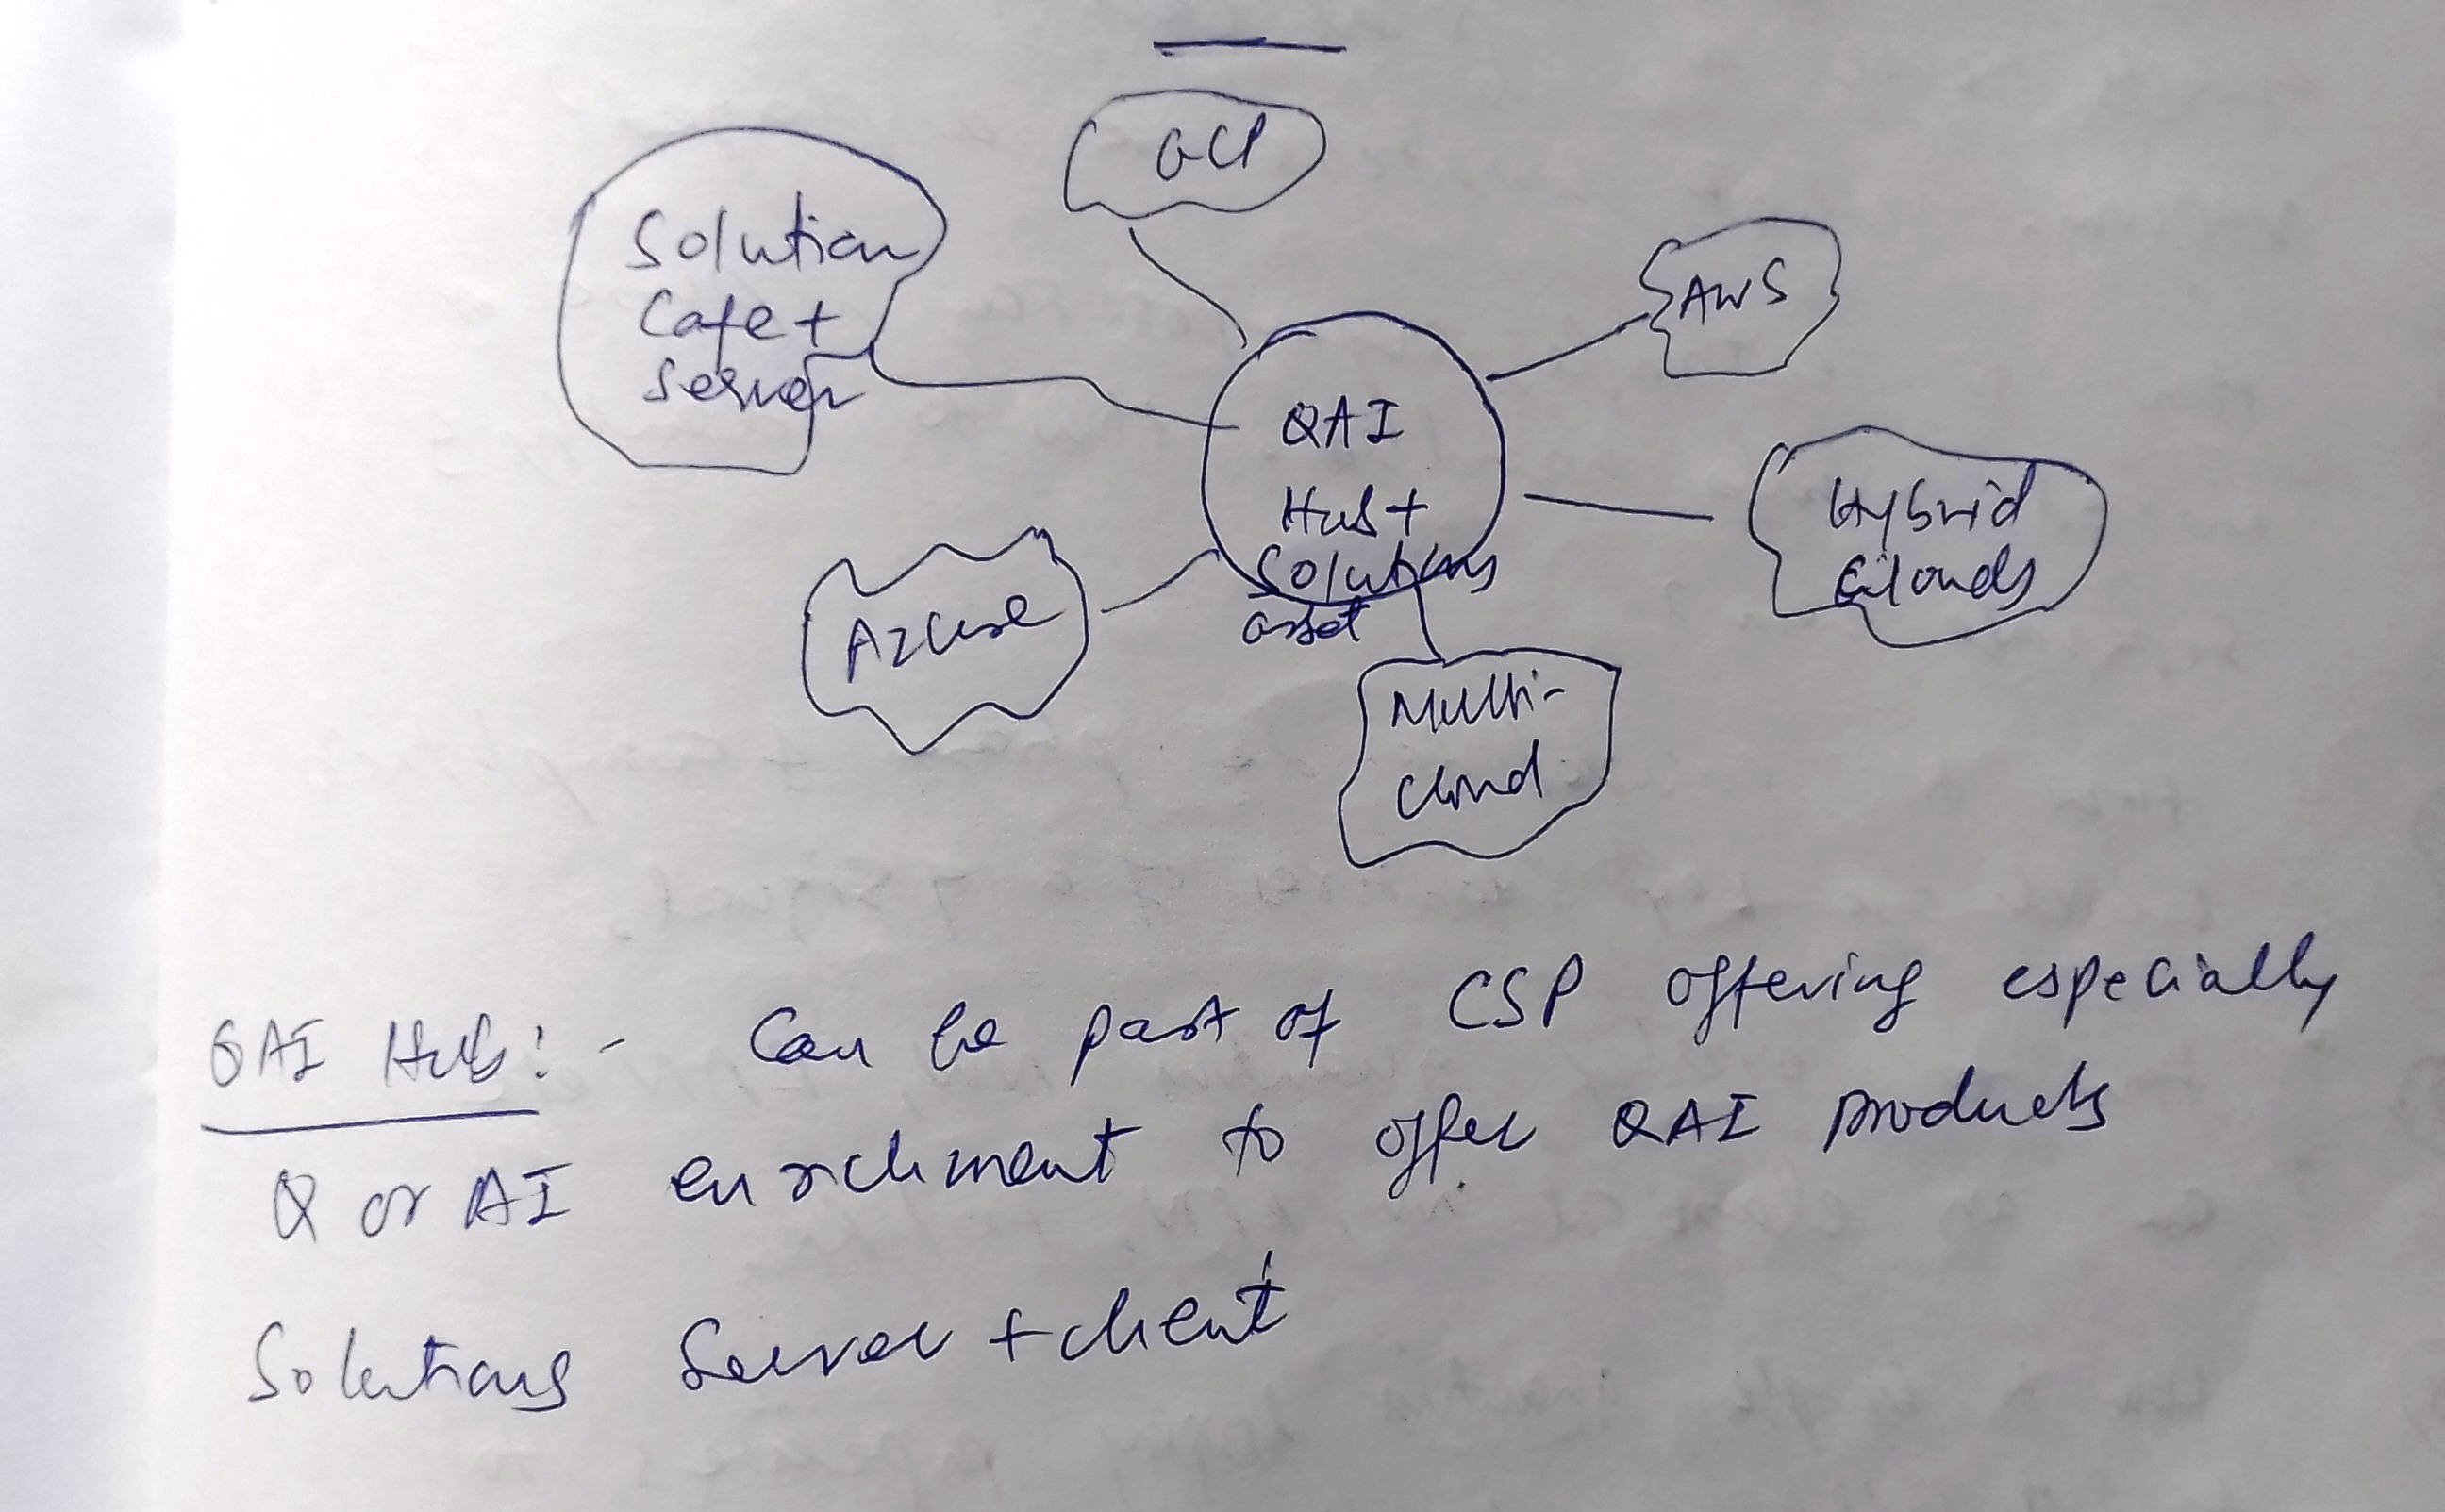 GCP
Solution
Cafe +
Server
AWS
QAI
Hub +
Solutions
asset
Hybrid
Clouds
Azure
Multi-
cloud
QAI Hub:- Can be part of CSP offering especially
Q or AI enrichment to offer QAI products
Solutions Server + client